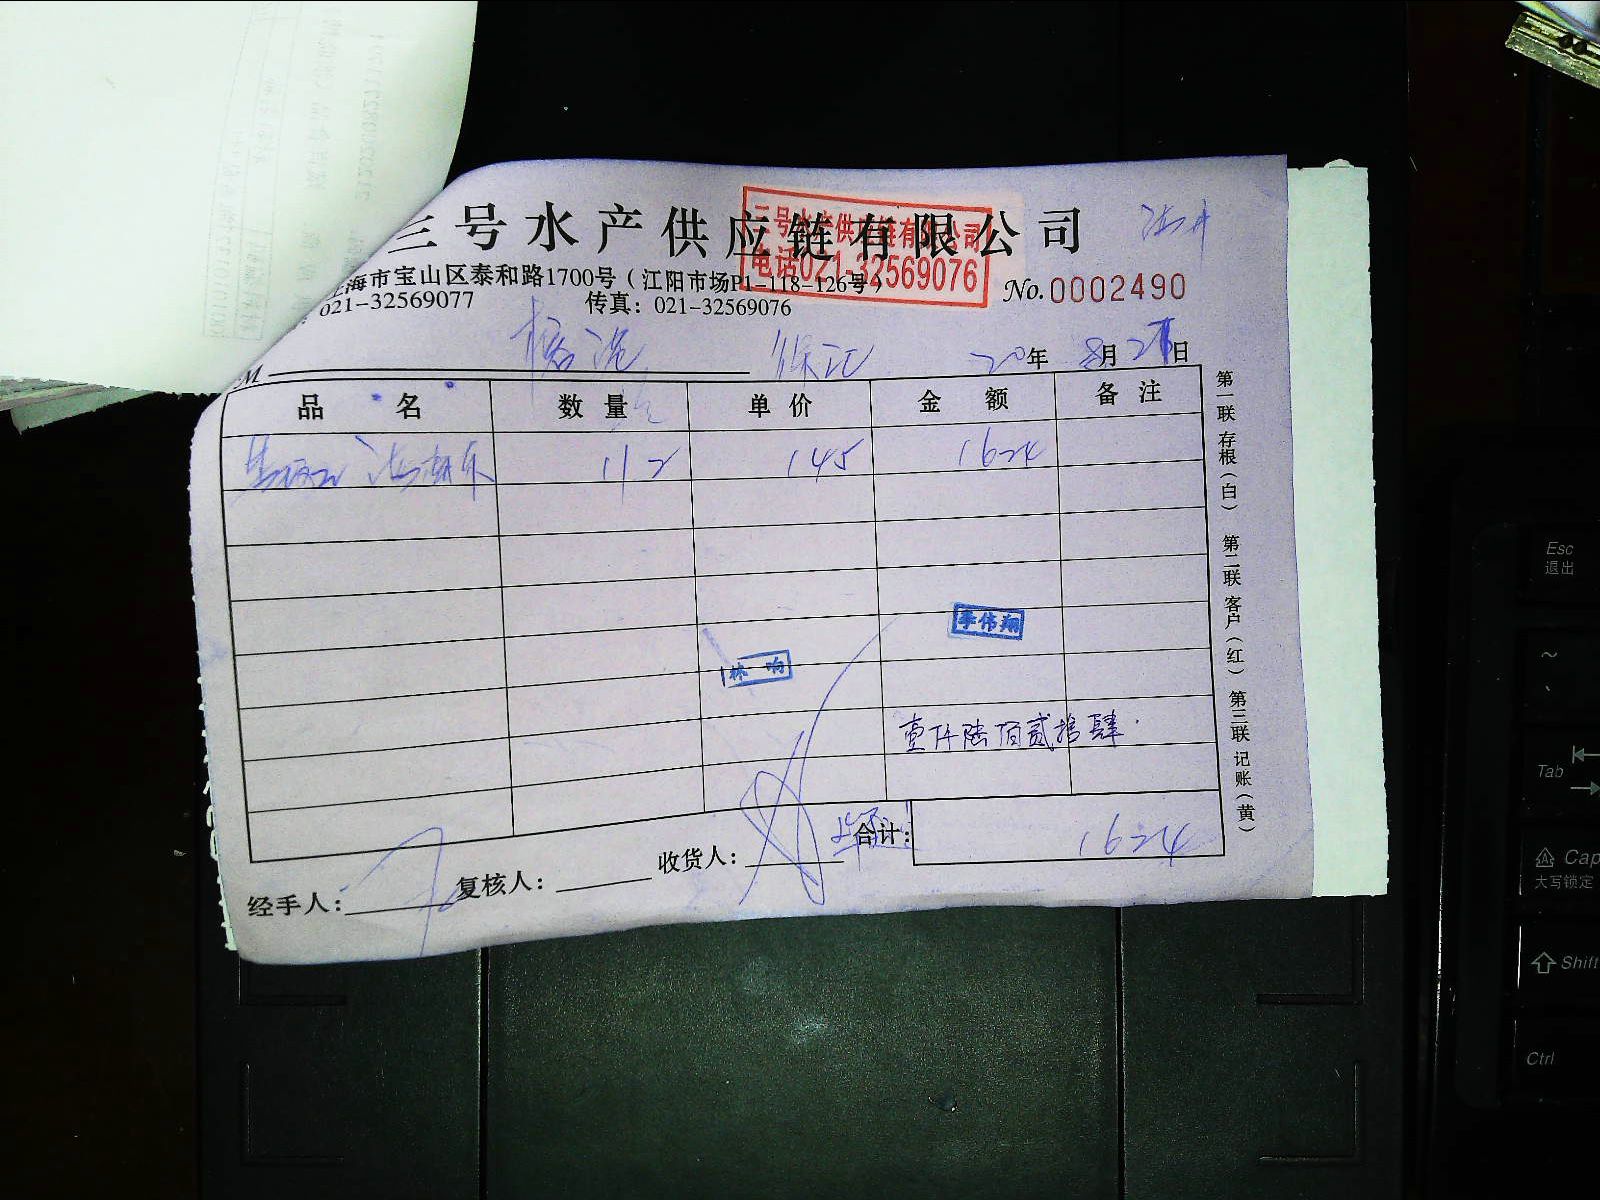 三号水产供应链有限公司
三号水产供应链有限公司
电话021-32569076
上海市宝山区泰和路1700号(江阳市场P1-118-126号)
021-32569077 传真：021-32569076
No.0002490
M 20年 8月 2 日
品名 数量 单价 金额 备注
112 145 1624
李伟翔
林响
壹仟陆佰贰拾肆
合计： 1624
经手人： 复核人： 收货人：
第一联 存根（白） 第二联 客户（红） 第三联 记账（黄）
Esc
退出
~
Tab
Cap
大写锁定
Shift
Ctrl